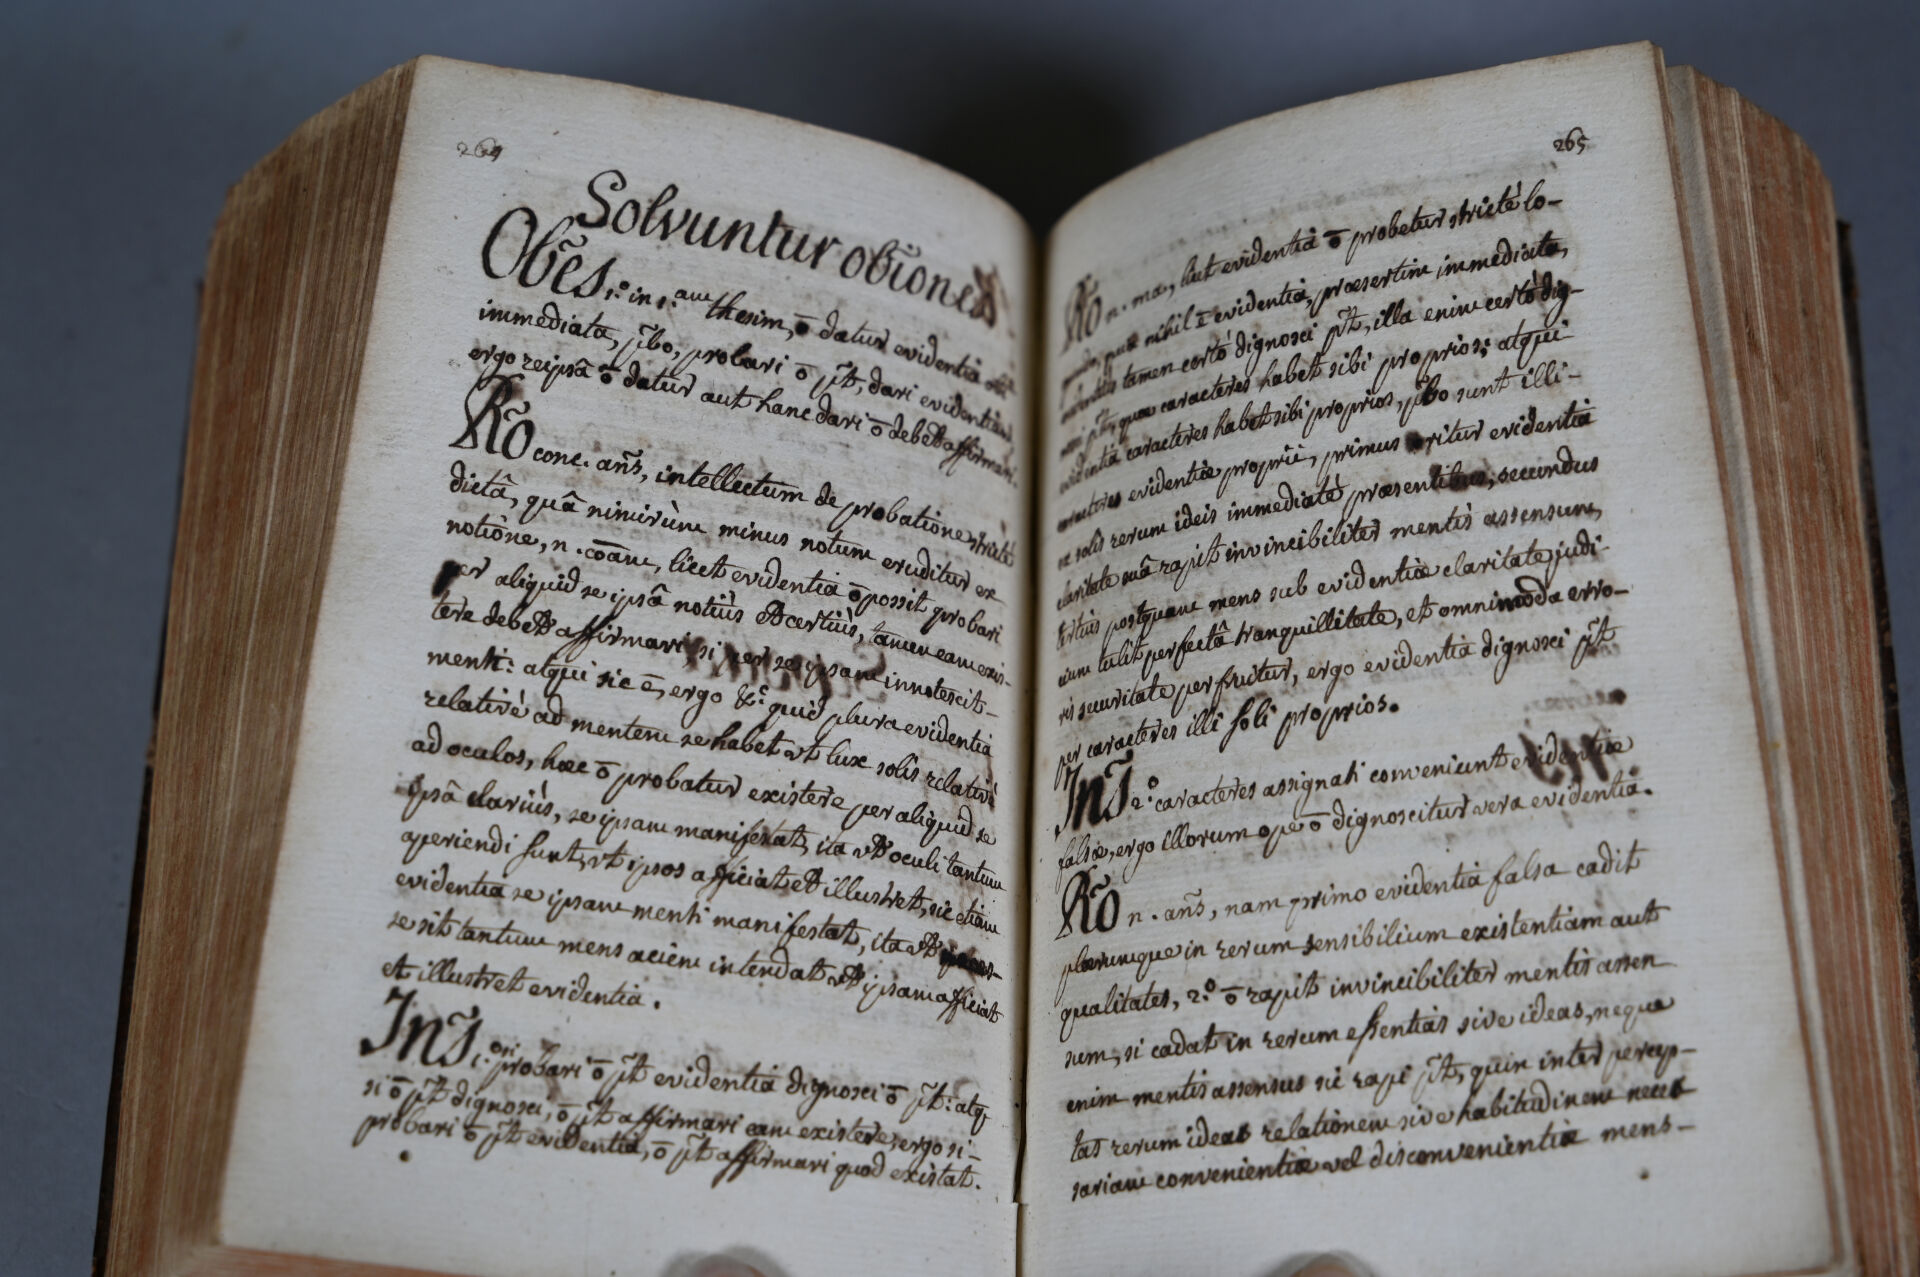 264
Solvuntur obiones
Obes. 1.º in 1.am thesim, ō datur evidentia
immediata, pbo, probari ō pt, dari evidentiam
ergo reipsâ ō datur aut hanc dari ō debet affirmari.
Ro conc. añs, intellectum de probatione strictè
dictâ, quâ nimirùm minus notum eruditur ex
notiône, n. coãm, licet evidentia ō possit probari
per aliquid se ipsâ notiùs et certiùs, tamen eam exis-
tere debet affirmari, si per se ipsam innotescit
menti: atqui sic ē, ergo &c. quid plura evidentia
relativè ad mentem se habet ut lux solis relativè
ad oculos, hæc ō probatur existere per aliquid se
ipsâ clariùs, se ipsam manifestat, ita ut oculi tantum
aperiendi sunt, ut ipsos afficiat et illustret, sic etiam
evidentia se ipsam menti manifestat, ita ut
se sit tantum mens aciem intendat ut ipsam afficiat
et illustret evidentia.
Ins. 1.º probari ō pt evidentia si dignosci ō pt: atq
si ō pt dignosci, ō pt affirmari eam existere, ergo si-
probari ō pt evidentia, ō pt affirmari quod existat.
265
Ro n. ma, licet evidentia ō probetur strictè lo-
quendo, quia nihil ē evidentiâ, præsertim immediata,
evidentius tamen certò dignosci pt, illa enim certò dig-
nosci pt, quæ caracteres habet sibi proprios; atqui
evidentia caracteres habet sibi proprios, pbo sunt illi-
caracteres evidentiæ proprii, primus oritur evidentia
ex solis rerum ideis immediatè præsentibus; secundus
claritate suâ rapit invincibiliter mentis assensum,
tertius postquam mens sub evidentiæ claritate judi-
cium tulit perfectâ tranquillitate, et omnimoda erro-
ris securitate perfruitur, ergo evidentia dignosci pt
per caracteres illi soli proprios.
Ins. 2.º caracteres assignati conveniunt evidentiæ
falsæ, ergo illorum ope ō dignoscitur vera evidentia.
Ro n. añs, nam primo evidentia falsa cadit
plerumque in rerum sensibilium existentiam aut
qualitates, 2.º ō rapit invincibiliter mentis assen
sum, si cadat in rerum essentias sive ideas, neque
enim mentis assensus sic rapi pt, quin inter percep-
tas rerum ideas relationem sive habitudinem neces
sariam convenientiæ vel disconvenientiæ mens-